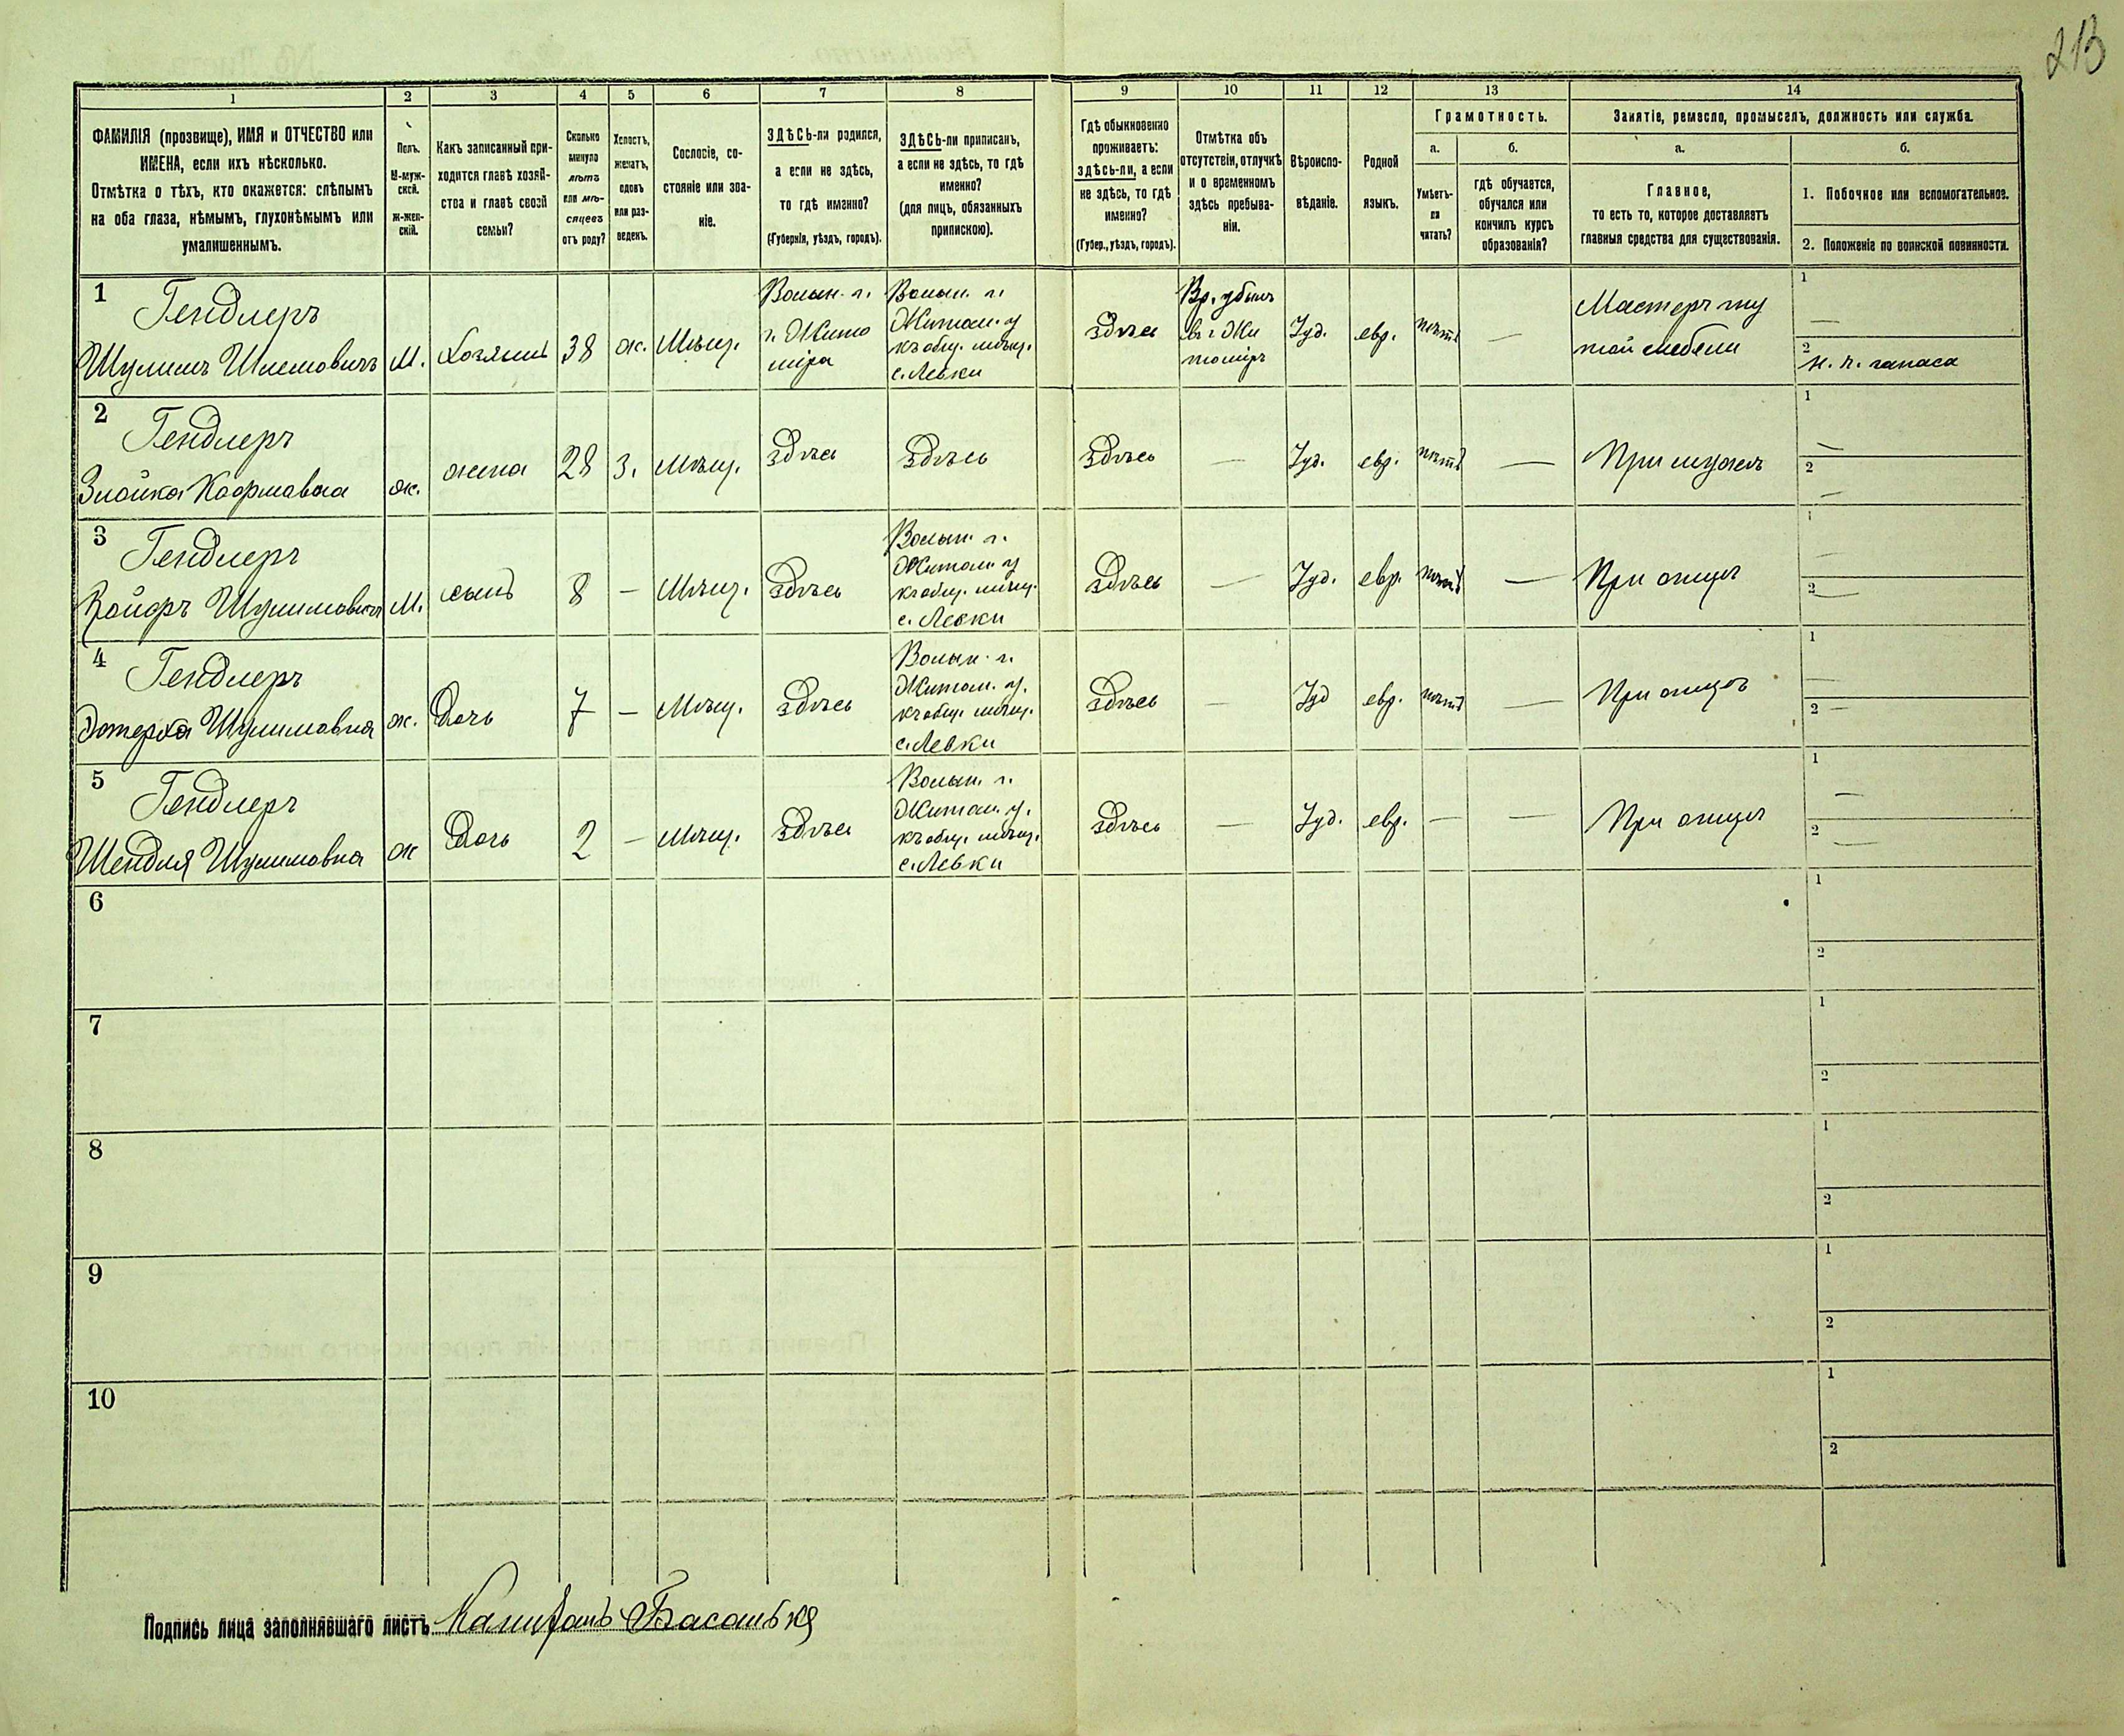 213
1 2 3 4 5 6 7 8 9 10 11 12 13 14
ФАМИЛІЯ (прозвище), ИМЯ и ОТЧЕСТВО или
ИМЕНА, если ихъ нѣсколько.
Отмѣтка о тѣхъ, кто окажется: слѣпымъ
на оба глаза, нѣмымъ, глухонѣмымъ или
умалишеннымъ.
Полъ.
М-муж-
ской.
ж-жен-
скій.
Какъ записанный при-
ходится главѣ хозяй-
ства и главѣ своей
семьи?
Сколько
минуло
лѣтъ
или мѣ-
сяцевъ
отъ роду?
Холостъ,
женатъ,
вдовъ
или раз-
веденъ.
Сословіе, со-
стояніе или зва-
ніе.
ЗДѢСЬ-ли родился,
а если не здѣсь,
то гдѣ именно?
(Губернія, уѣздъ, городъ).
ЗДѢСЬ-ли приписанъ,
а если не здѣсь, то гдѣ
именно?
(для лицъ, обязанныхъ
припискою).
Гдѣ обыкновенно
проживаетъ:
здѣсь-ли, а если
не здѣсь, то гдѣ
именно?
(Губер., уѣздъ, городъ).
Отмѣтка объ
отсутствіи, отлучкѣ
и о временномъ
здѣсь пребыва-
ніи.
Вѣроиспо-
вѣданіе.
Родной
языкъ.
Грамотность.
а.
Умѣетъ-
ли
читать?
б.
гдѣ обучается,
обучался или
кончилъ курсъ
образованія?
Занятіе, ремесло, промыселъ, должность или служба.
а.
Главное,
то есть то, которое доставляетъ
главныя средства для существованія.
б.
1. Побочное или вспомогательное.
2. Положеніе по воинской повинности.
1
Гендлеръ
Шулимъ Шлемовичъ
М.
Хозяинъ
38
ж.
Мѣщ.
Волын. г.
г. Жито
міра
Волын. г.
Житом. у
къ общ. мѣщ.
с. Левки
здѣсь
Вр. убылъ
въ г. Жи
томіръ
Іуд.
евр.
нѣтъ
—
Мастеръ гну
той мебели
1
—
2
н. ч. запаса
2
Гендлеръ
ж.
жена
28
З.
Мѣщ.
здѣсь
Здѣсь
Здѣсь
—
Іуд.
евр.
нѣтъ
—
При мужѣ
1
—
2
—
3
Гендлеръ
М.
сынъ
8
—
Мѣщ.
Здѣсь
Волын. г.
Житом. у
къ общ. мѣщ.
с. Левки
Здѣсь
—
Іуд.
евр.
нѣтъ
—
При отцѣ
1
—
2
—
4
Гендлеръ
Эстерка Шулимовна
ж.
Дочь
7
—
Мѣщ.
Здѣсь
Волын. г.
Житом. у.
къ общ. мѣщ.
с. Левки
Здѣсь
—
Іуд
евр.
нѣтъ
—
При отцѣ
1
—
2
—
5
Гендлеръ
Шендля Шулимовна
ж
Дочь
2
—
Мѣщ.
Здѣсь
Волын. г.
Житом. у.
къ общ. мѣщ.
с. Левки
Здѣсь
—
Іуд.
евр.
—
—
При отцѣ
1
—
2
—
6
1
2
7
1
2
8
1
2
9
1
2
10
1
2
Подпись лица заполнявшаго листъ